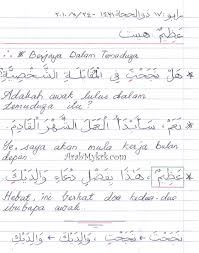 عَظِيْمٌ هيبت
∴ * Berjaya Dalam Temuduga
* هَلْ نَجَحْتَ فِي الْمُقَابَلَةِ الشَّخْصِيَّةِ؟
Adakah awak lulus dalam
temuduga itu?
* نَعَمْ، سَأَبْدَأُ الْعَمَلَ الشَّهْرَ الْقَادِمَ.
Ye, saya akan mula kerja bulan
depan.
ArabMykrk.com
* عَظِيْمٌ، هَذَا بِفَضْلِ دُعَاءِ وَالِدَيْكَ
Hebat, ini berkat doa kedua-dua
ibubapa awak
نَجَحْتَ ← نَجَحْتِ ، وَالِدَيْكَ ← وَالِدَيْكِ